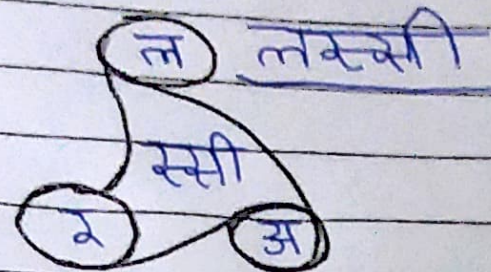 ल लस्सी
स्सी
र अ